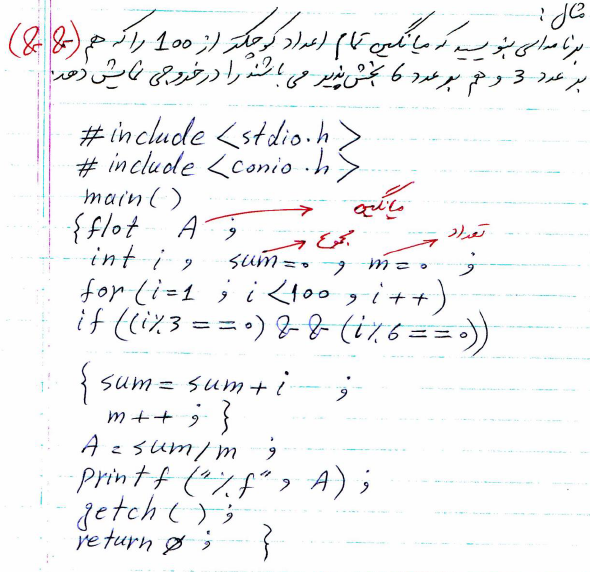 مثال :
برنامه ای بنویسید که میانگین تمام اعداد کوچکتر از 100 را که هم (&&)
بر عدد 3 و هم بر عدد 6 بخش پذیر می باشند را در خروجی نمایش دهد.
#include <stdio.h>
# include <conio.h>
main()
{flot A ; میانگین
int i , sum=0 , m=0 ; مجموع تعداد
for (i=1 ; i<100 , i++)
if ((i%3==0) && (i%6==0))
{ sum= sum+i ;
m++ ; }
A = sum/m ;
printf ("%f" , A) ;
getch() ;
return 0 ; }